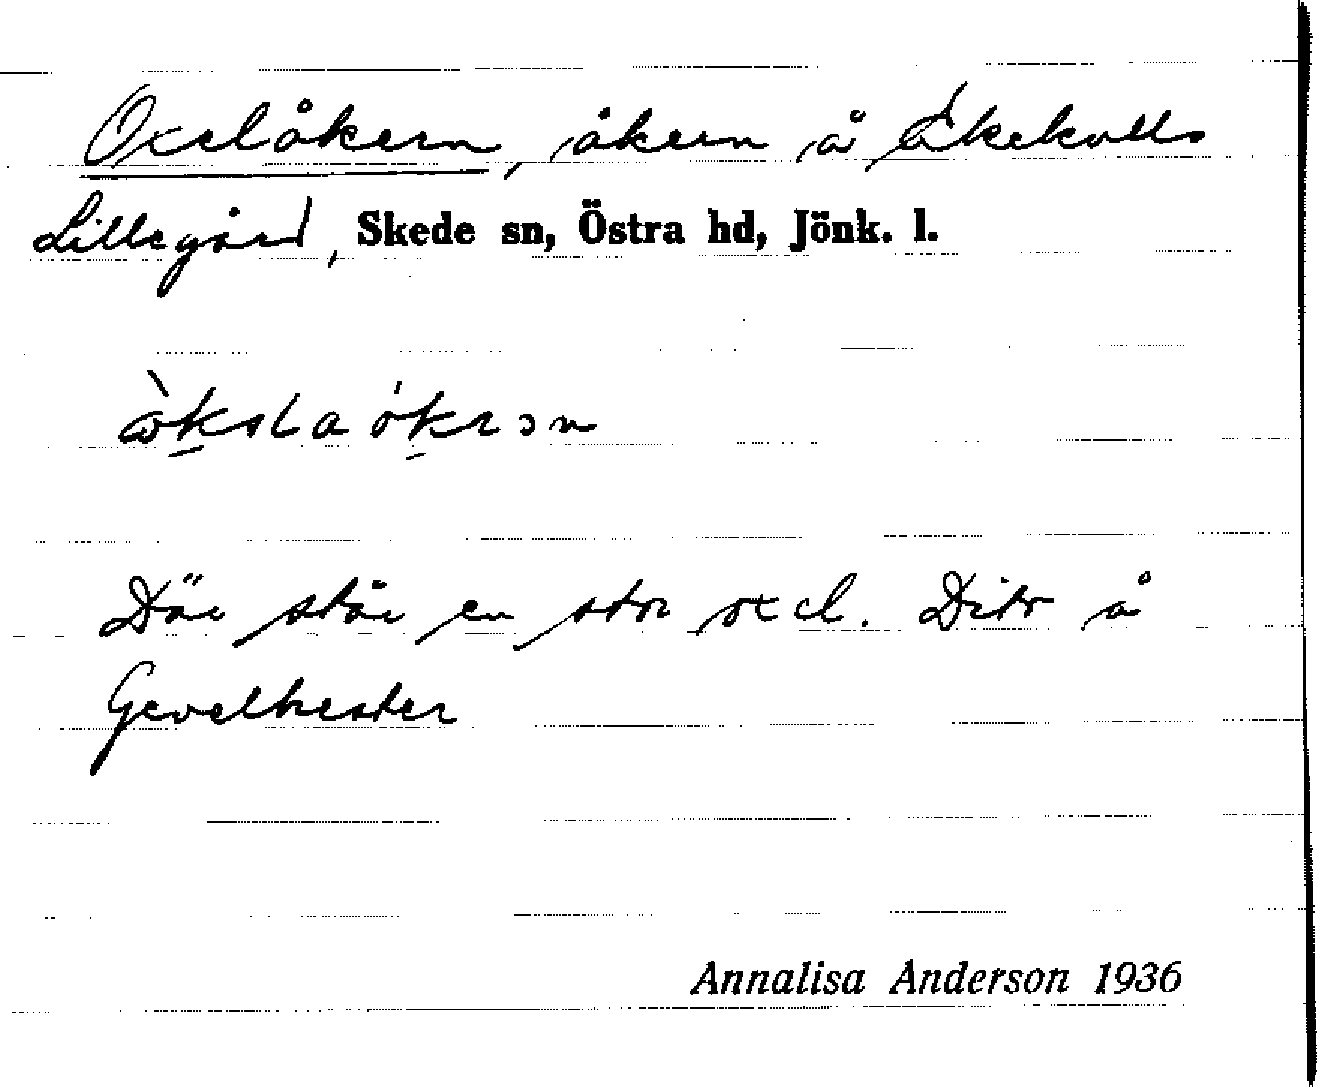 Oxelåkern, åkern å Ekekulls
Lillegård, Skede sn, Östra hd, Jönk. l.
Där står en stor oxel. Ditr å
Gevelhester
Annalisa Anderson 1936